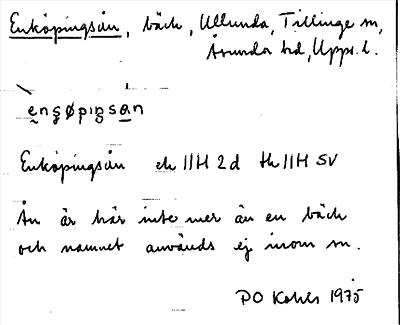 Enköpingsån, bäck, Ullunda, Tillinge sn,
Åsunda hd, Upps. l.
enʂøpiŋsan
Enköpingsån ek 11H 2d tk 11H SV
Ån är här inte mer än en bäck
och namnet används ej inom sn.
PO Kohls 1975